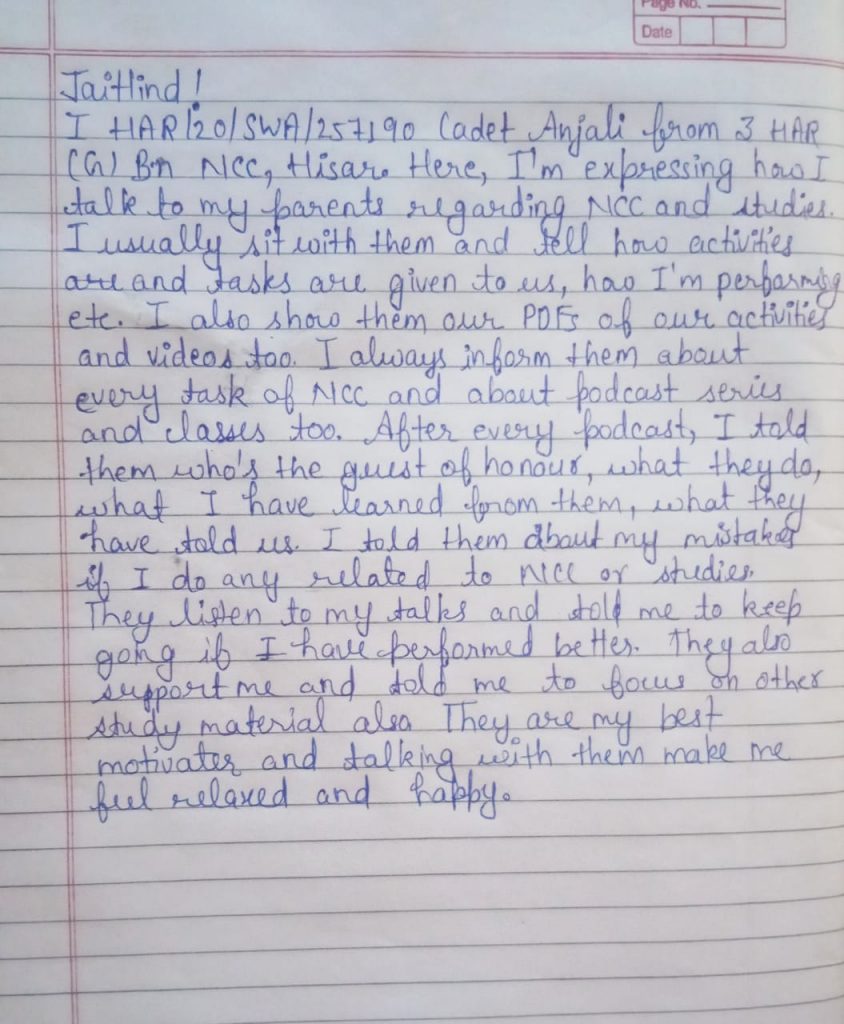 Page No.
Date
JaiHind!
I HAR/20/SWA/257190 Cadet Anjali from 3 HAR
(G) Bn NCC, Hisar. Here, I'm expressing how I
talk to my parents regarding NCC and studies.
I usually sit with them and tell how activities
are and tasks are given to us, how I'm performing
etc. I also show them our PDFs of our activities
and videos too. I always inform them about
every task of NCC and about podcast series
and classes too. After every podcast, I told
them who's the guest of honour, what they do,
what I have learned from them, what they
have told us. I told them about my mistakes
if I do any related to NCC or studies.
They listen to my talks and told me to keep
going if I have performed better. They also
support me and told me to focus on other
study material also They are my best
motivater and talking with them make me
feel relaxed and happy.